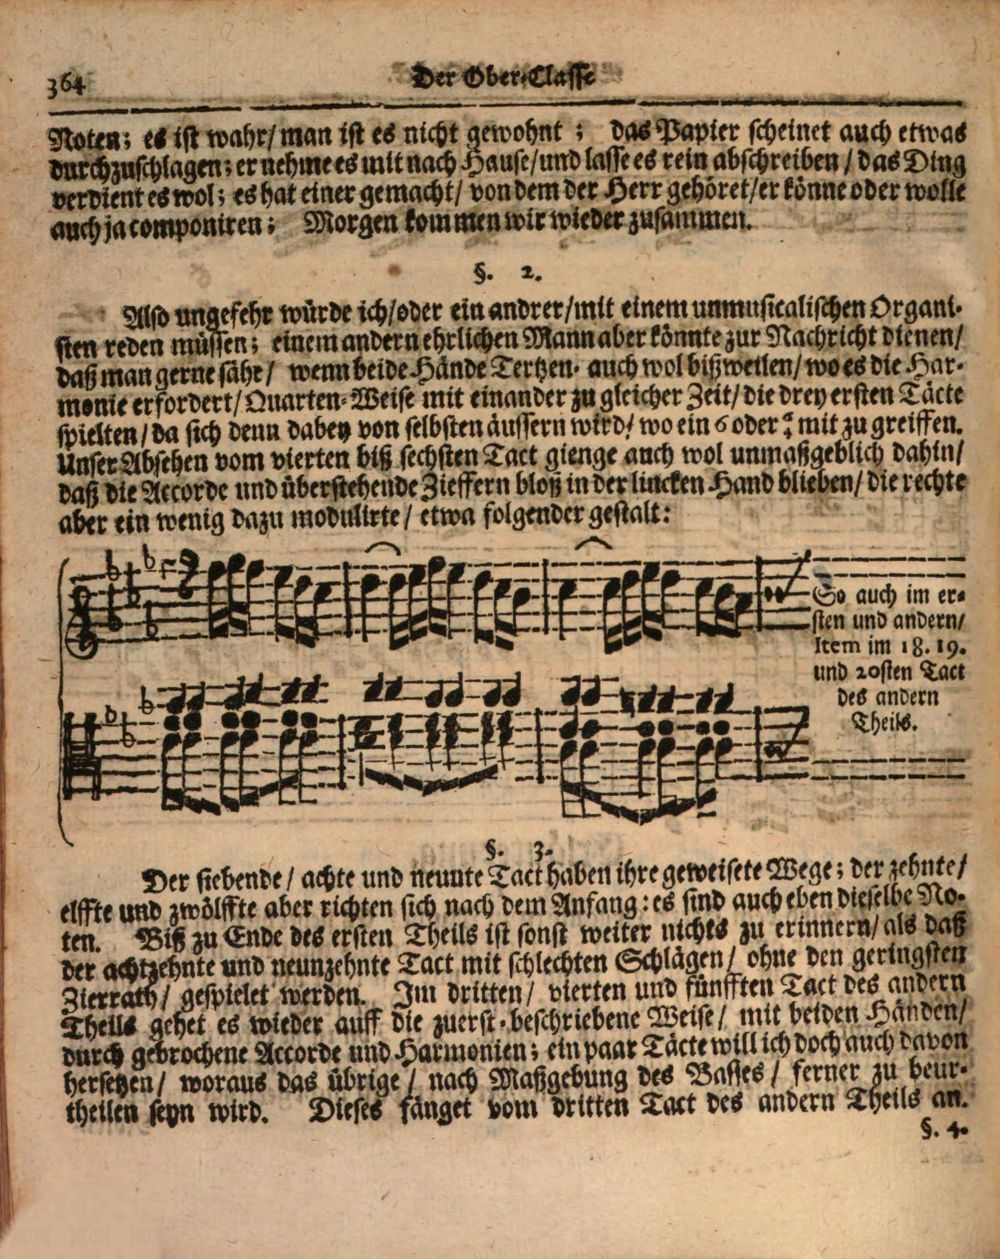 364 Der Ober-Classe
Noten; es ist wahr/ man ist es nicht gewohnt; das Papier scheinet auch etwas
durchzuschlagen; er nehme es mit nach Hause/ und lasse es rein abschreiben/ das Ding
verdient es wol; es hat einer gemacht/ von dem der Herr gehöret/ er könne oder wolle
auch ja componiren; Morgen kommen wir wieder zusammen.
§. 2.
Also ungefehr würde ich/ oder ein andrer/ mit einem unmusicalischen Organi-
sten reden müssen; einem andern ehrlichen Mann aber könnte zur Nachricht dienen/
daß man gerne sähe/ wenn beide Hände Tertzen- auch wol bißweilen/ wo es die Har-
monie erfordert/ Quarten-Weise mit einander zu gleicher Zeit/ die drey ersten Täcte
spielten/ da sich denn dabey von selbsten äussern wird/ wo ein 6 oder mit zu greiffen.
Unser Absehen vom vierten biß sechsten Tact gienge auch wol unmaßgeblich dahin/
daß die Accorde und überstehende Zieffern bloß in der lincken Hand blieben/ die rechte
aber ein wenig dazu modulirte/ etwa folgender gestalt:
So auch im er-
sten und andern/
Item im 18. 19.
und 20sten Tact
des andern
Theils.
§. 3.
Der siebende/ achte und neunte Tact haben ihre geweisete Wege; der zehnte/
elffte und zwölffte aber richten sich nach dem Anfang: es sind auch eben dieselbe No-
ten. Biß zu Ende des ersten Theils ist sonst weiter nichts zu erinnern/ als daß
der achtzehnte und neunzehnte Tact mit schlechten Schlägen/ ohne den geringsten
Zierrath/ gespielet werden. Im dritten/ vierten und fünfften Tact des andern
Theils gehet es wieder auff die zuerst-beschriebene Weise/ mit beiden Händen/
durch gebrochene Accorde und Harmonien; ein paar Täcte will ich doch auch davon
hersetzen/ woraus das übrige/ nach Maßgebung des Basses/ ferner zu beur-
theilen seyn wird. Dieses fänget vom dritten Tact des andern Theils an.
§. 4.